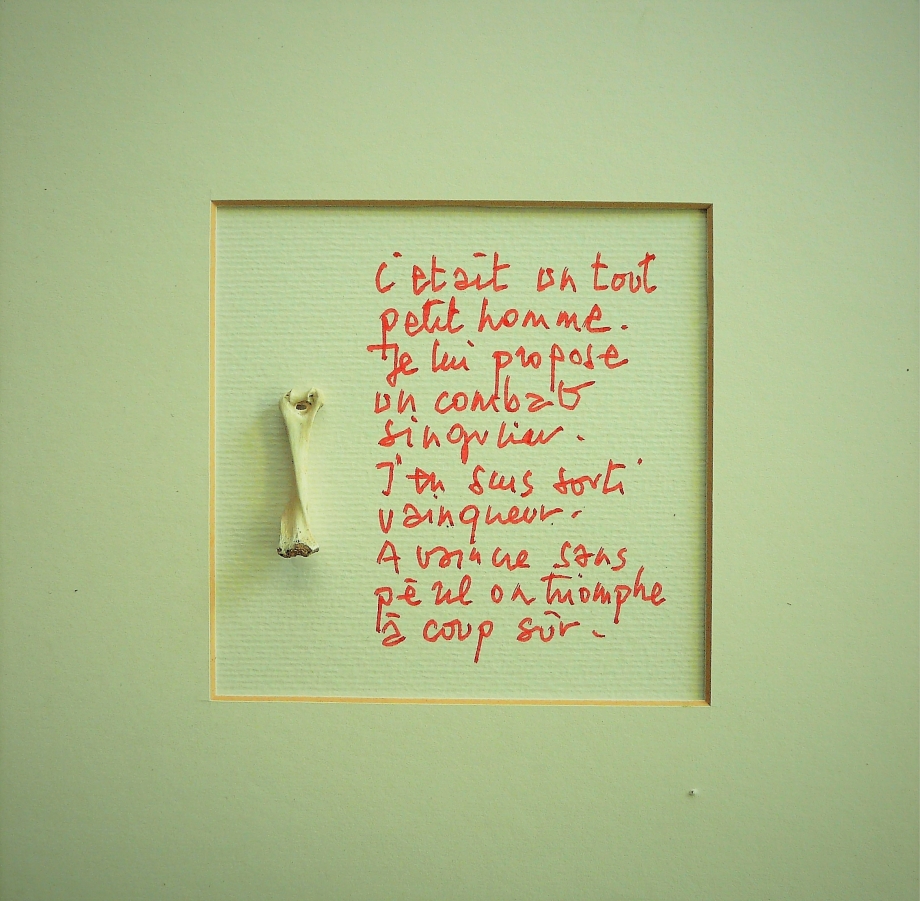 C'etait un tout
petit homme.
Je lui propose
un combat
singulier.
J'en suis sorti
vainqueur.
A vaincre sans
péril on triomphe
à coup sûr.